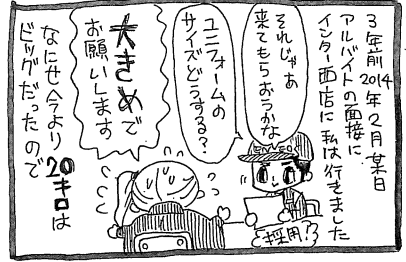 3年前2014年2月某日
アルバイトの面接に
インター西店に私は行きました
それじゃあ
来てもらおうかな
ユニフォームの
サイズどうする?
採用!?
大きめで
お願いします
なにせ今より
20キロは
ビッグだったので